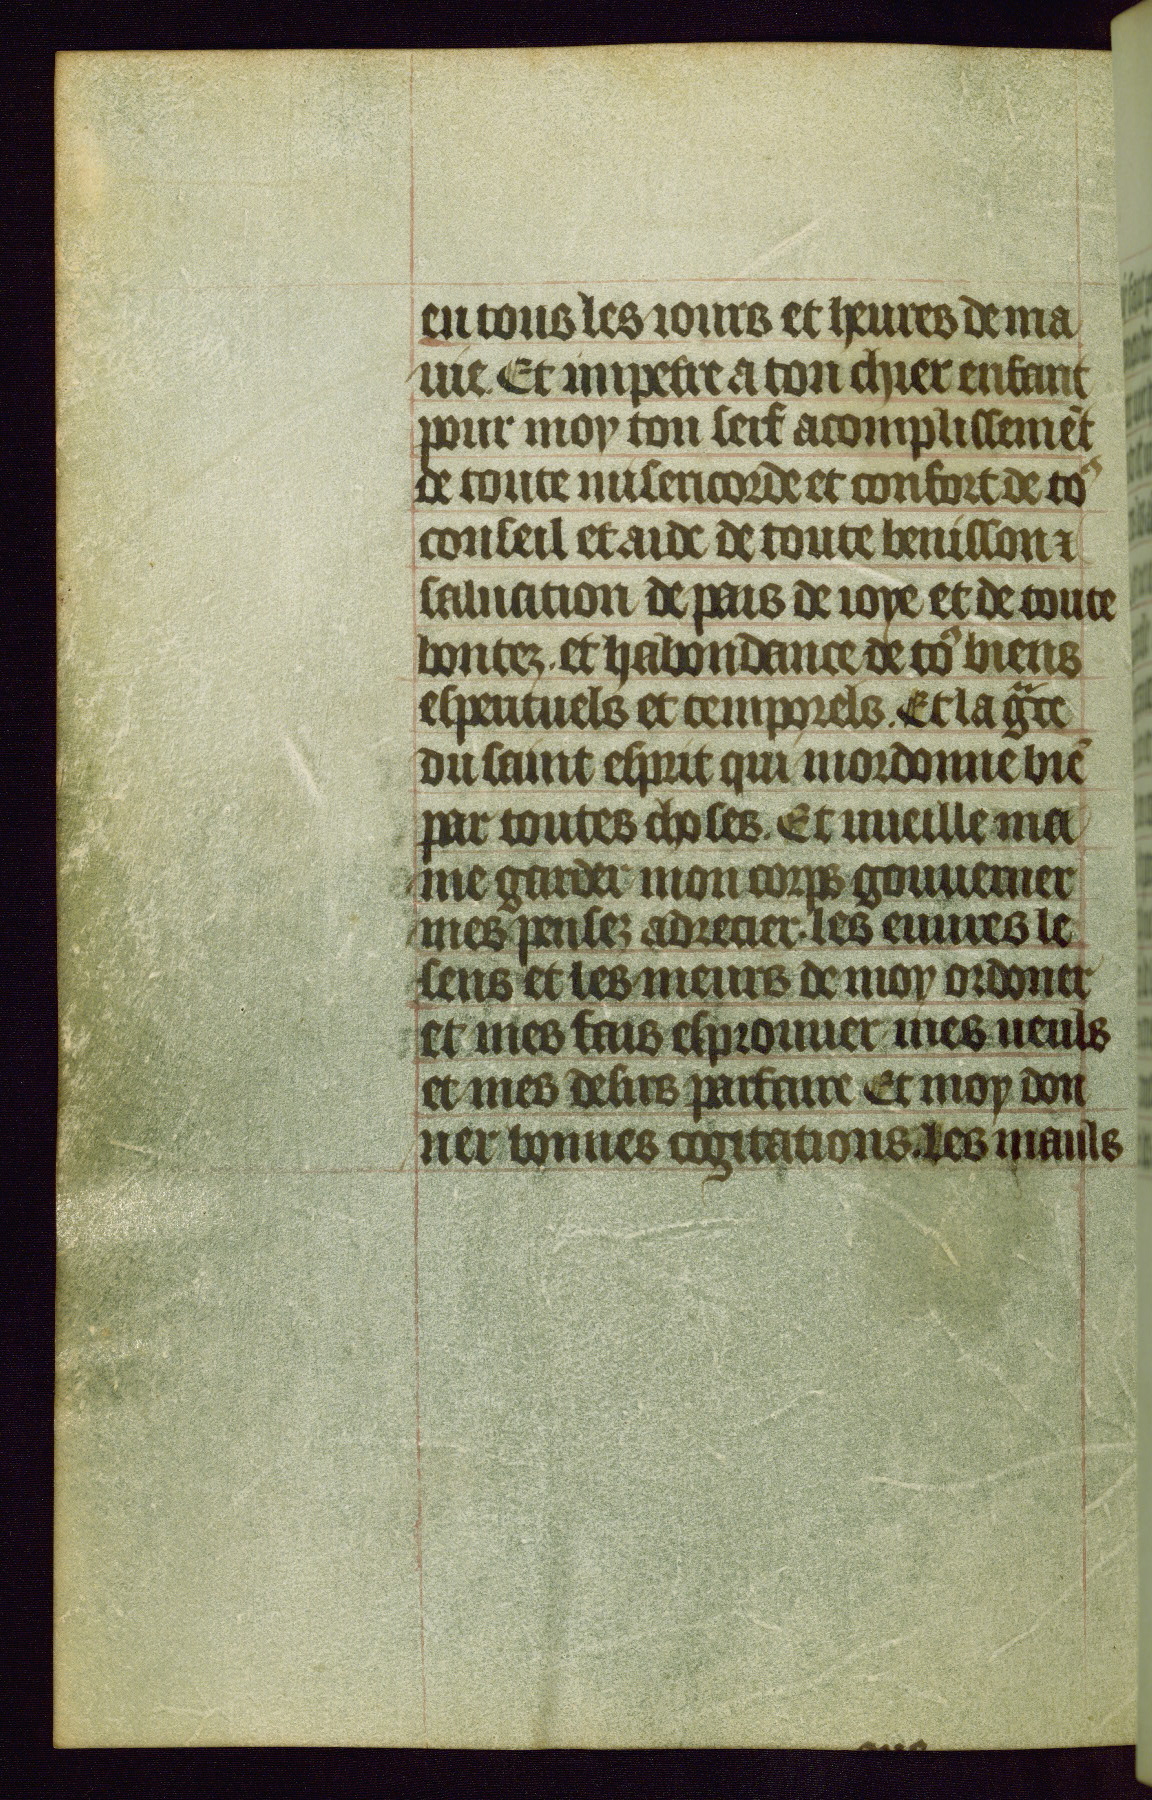 en tous les iours et heures de ma
uie. Et impetre a ton chier enfant
pour moy ton serf acomplissemēt
de toute misericorde et confort de toꝰ
conseil et aide de toute benisson ⁊
saluation de pais de ioye et de toute
bontez. et habondance de toꝰ biens
esperituels et temporels. Et la grāce
du saint esprit qui mordonne biē
par toutes choses. Et vueille ma
me garder mon corps gouuerner
mes pensez adrecier. les euures le
sens et les meurs de moy ordoner
et mes fais esprouuer mes ueuls
et mes desirs parfaire Et moy don
ner bonnes cogitations. Les mauls